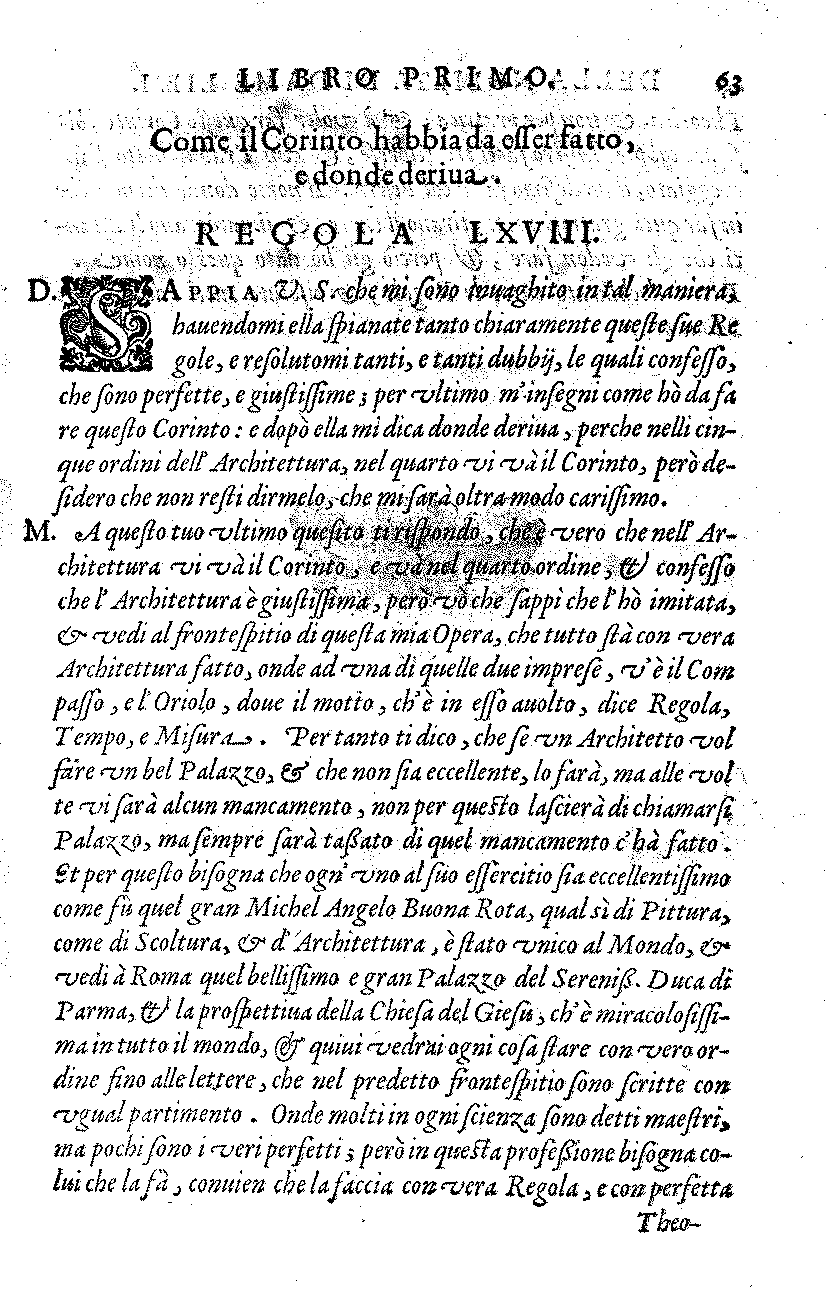 LIBRO PRIMO. 63
Come il Corinto habbia da eſſer fatto,
e donde deriua.
REGOLA LXVIII.
D. SAPPIA V. S. che mi ſono inuaghito in tal maniera,
hauendomi ella ſpianate tanto chiaramente queſte ſue Re
gole, e reſolutomi tanti, e tanti dubbij, le quali confeſſo,
che ſono perfette, e giuſtiſſime; per vltimo m'inſegni come hò da fa
re queſto Corinto: e dopò ella mi dica donde deriua, perche nelli cin-
que ordini dell'Architettura, nel quarto vi và il Corinto, però de-
ſidero che non reſti dirmelo, che mi ſarà oltra modo cariſſimo.
M. A queſto tuo vltimo queſito ti riſpondo, che è vero che nell'Ar-
chitettura vi và il Corinto, e và nel quarto ordine, & confeſſo
che l'Architettura è giuſtiſſima, però vò che ſappi che l'hò imitata,
& vedi al fronteſpitio di queſta mia Opera, che tutto ſtà con vera
Architettura fatto, onde ad vna di quelle due impreſe, v'è il Com
paſſo, e l'Oriolo, doue il motto, ch'è in eſſo auolto, dice Regola,
Tempo, e Miſura. Per tanto ti dico, che ſe vn Architetto vol
fare vn bel Palazzo, & che non ſia eccellente, lo farà, ma alle vol
te vi ſarà alcun mancamento, non per queſto laſcierà di chiamarſi
Palazzo, ma ſempre ſarà taßato di quel mancamento c'hà fatto.
Et per queſto biſogna che ogn'vno al ſuo eſſercitio ſia eccellentiſſimo
come fù quel gran Michel Angelo Buona Rota, qual sì di Pittura,
come di Scoltura, & d'Architettura, è ſtato vnico al Mondo, &
vedi à Roma quel belliſſimo e gran Palazzo del Sereniß. Duca di
Parma, & la proſpettiua della Chieſa del Gieſù, ch'è miracoloſiſſi-
ma in tutto il mondo, & quiui vedrai ogni coſa ſtare con vero or-
dine fino alle lettere, che nel predetto fronteſpitio ſono ſcritte con
vgual partimento. Onde molti in ogni ſcienza ſono detti maeſtri,
ma pochi ſono i veri perfetti; però in queſta profeßione biſogna co-
lui che la fà, conuien che la faccia con vera Regola, e con perfetta
Theo-